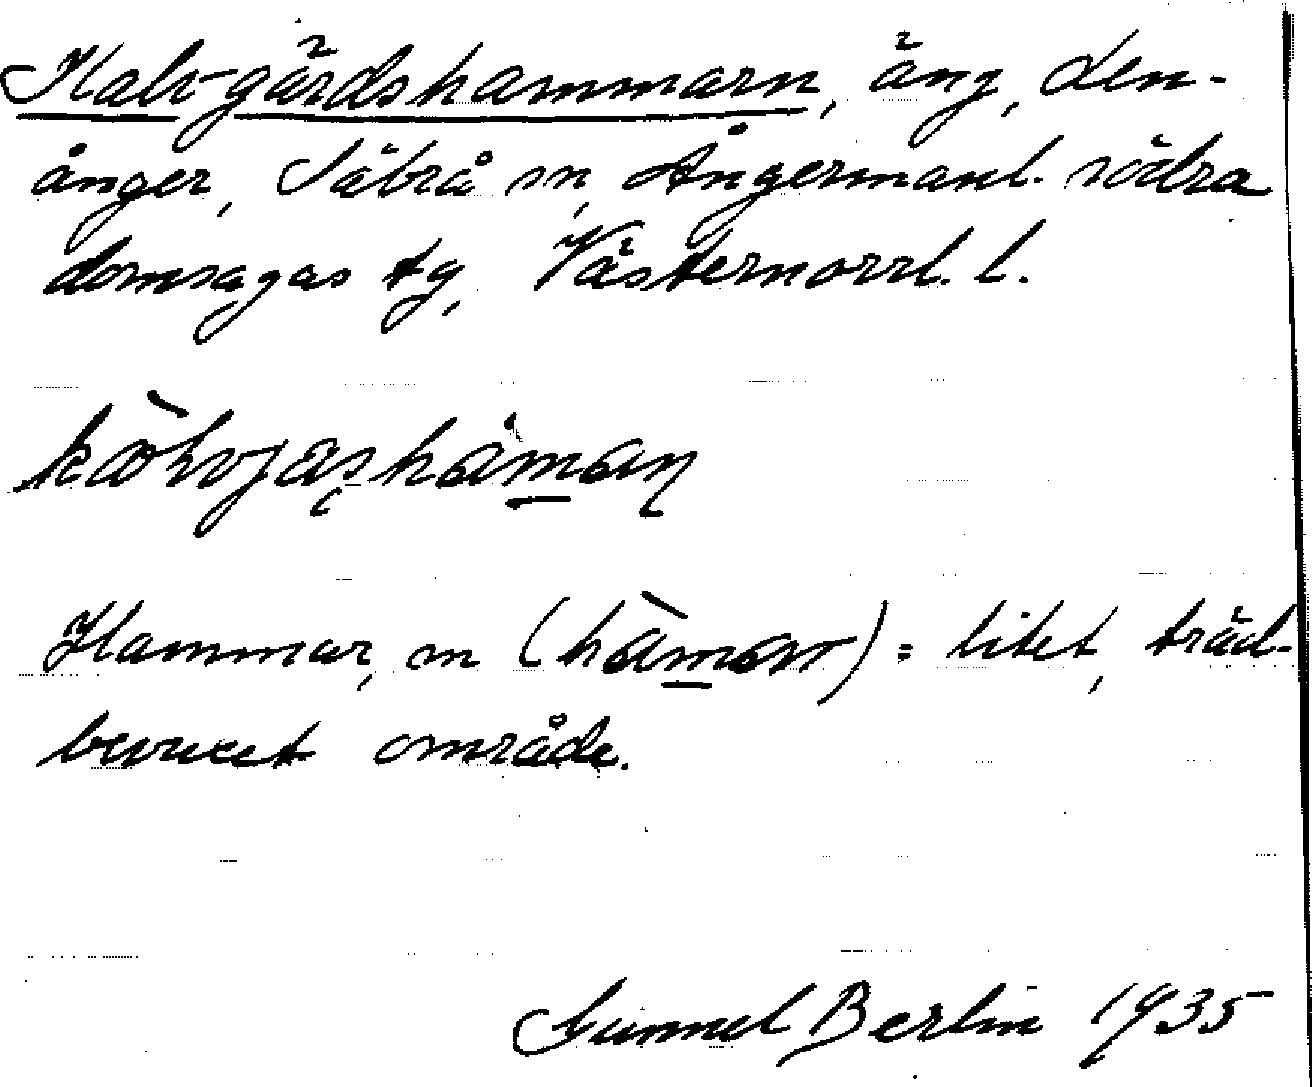 Kalvgärdshammarn, äng, Den-
ånger, Säbrå sn, Ångermanl. södra
domsagas tg, Västernorrl. l.
Hammar, m (hàmar) = litet, träd-
bevuxet område.
Gunnel Berlin 1935